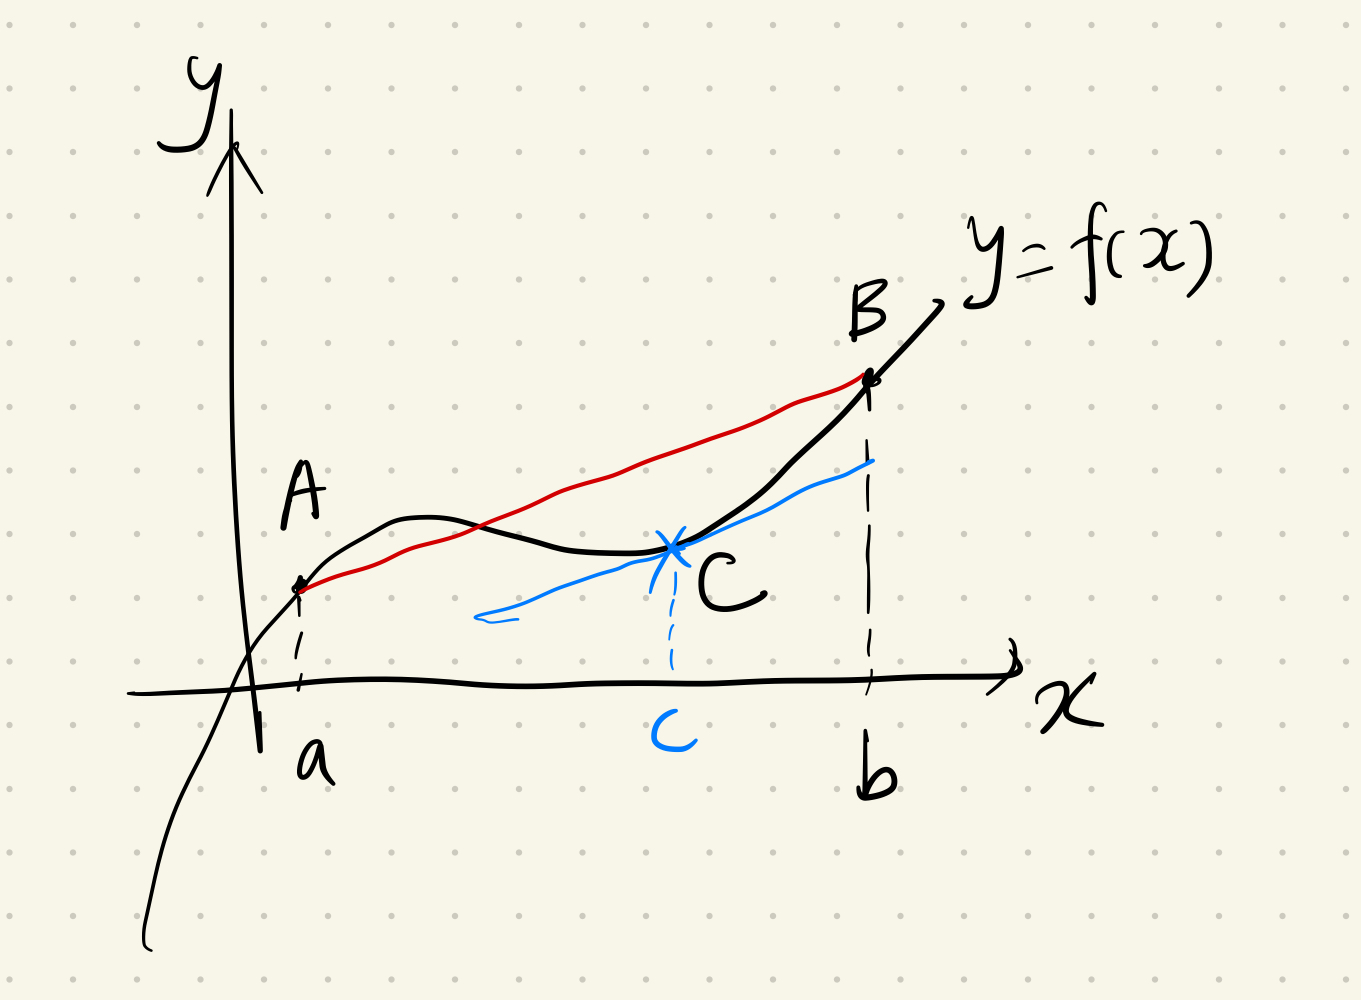 y
y = f(x)
B
A
C
x
a
c
b